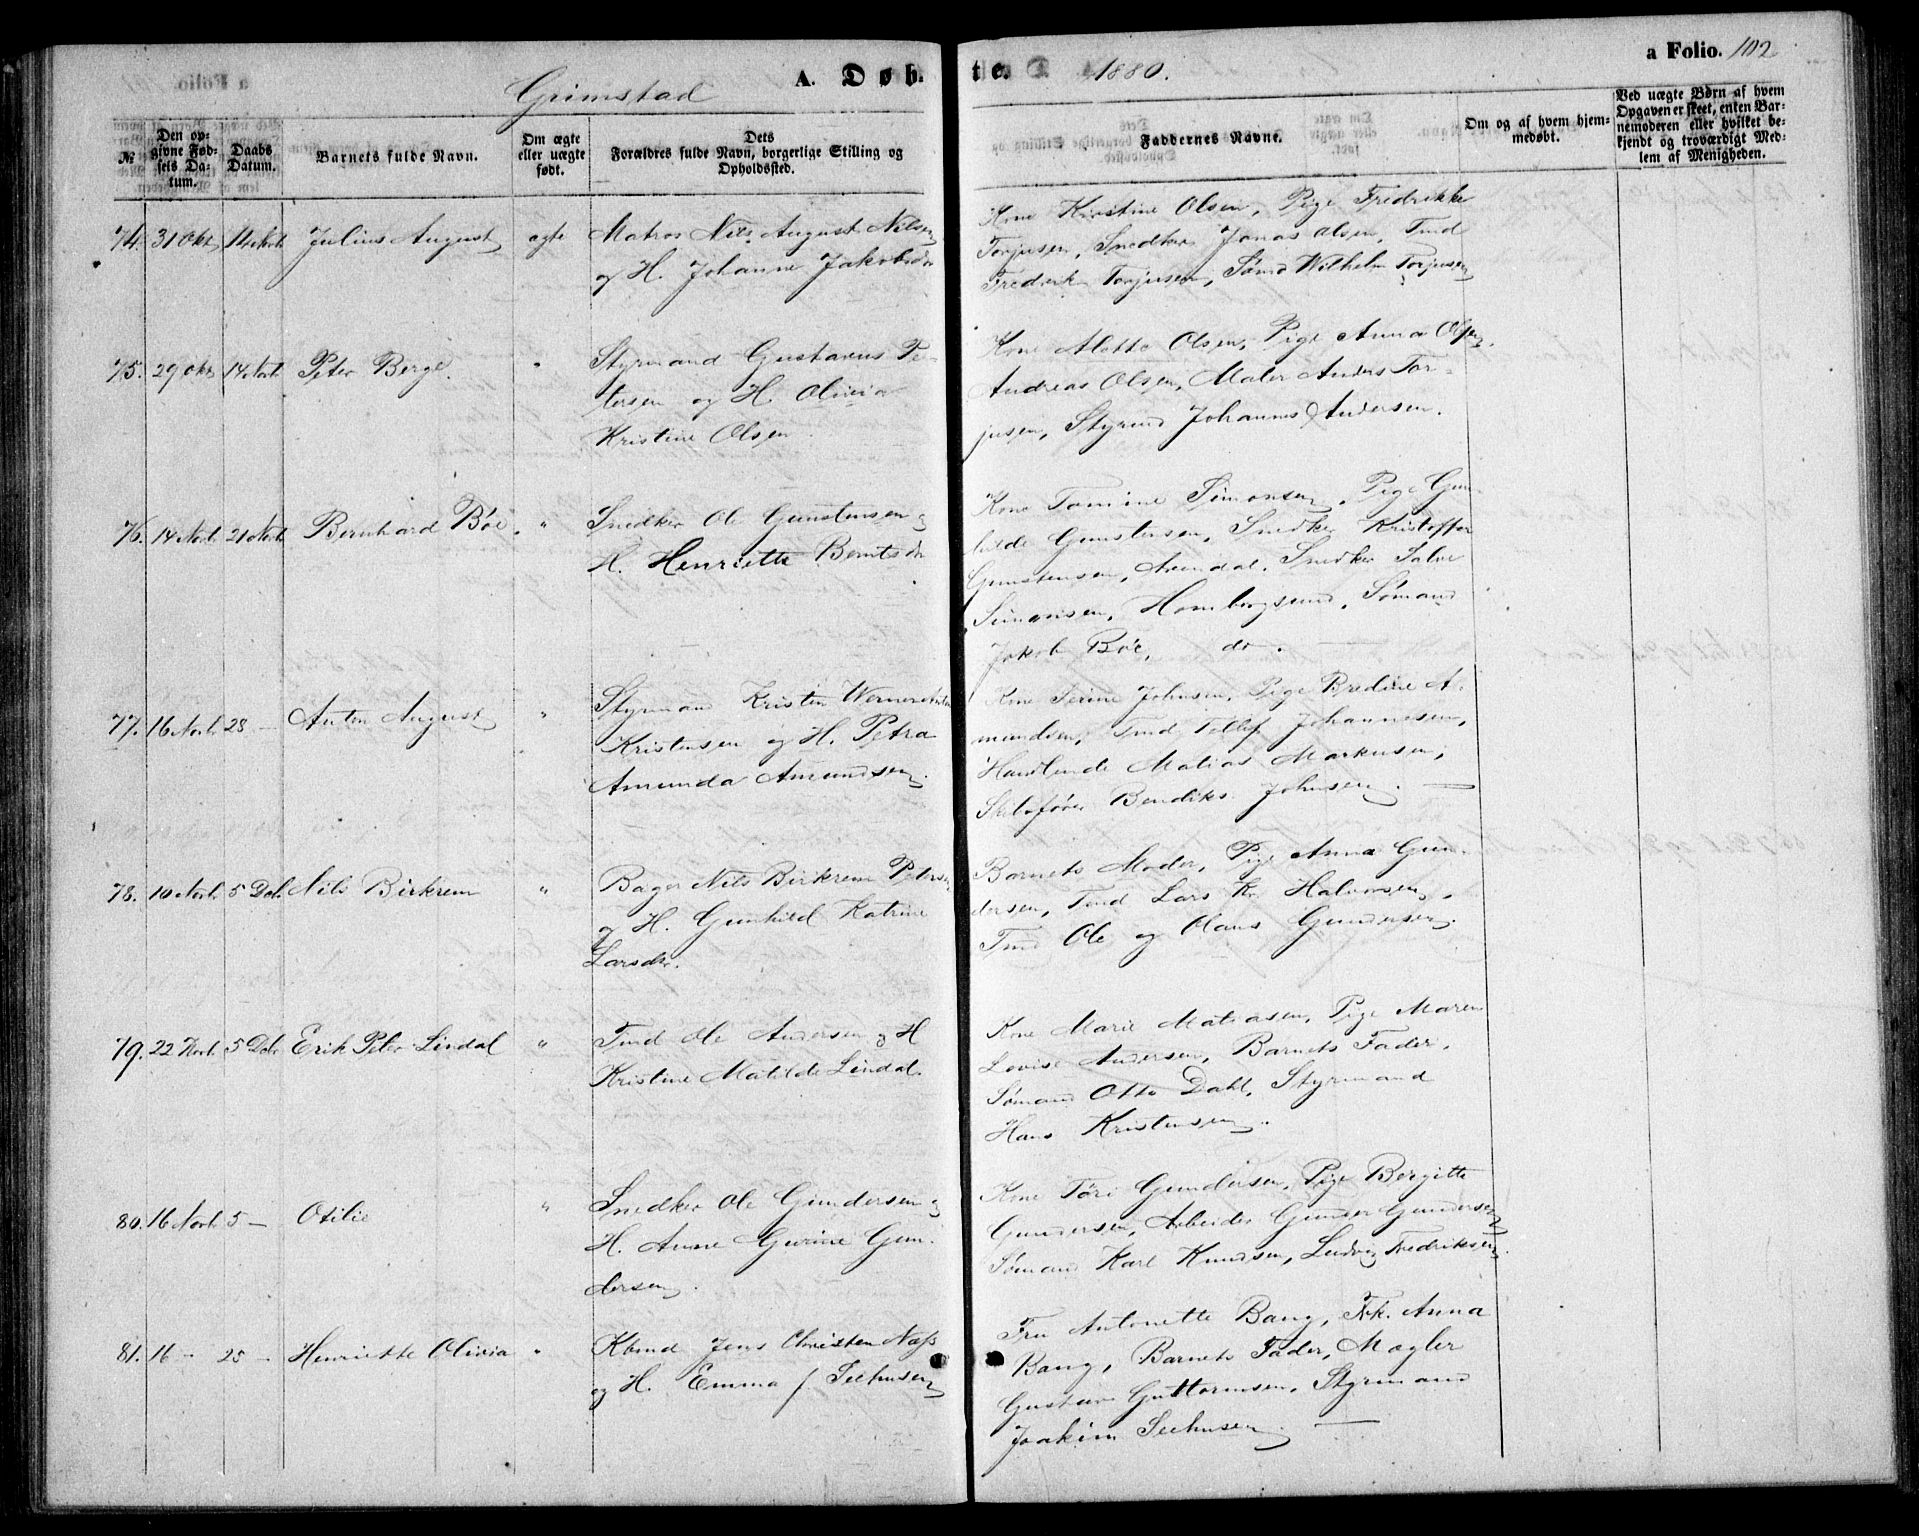 Grimstad
A. Døbte. 1880.
a Folio. 102
№
Den opgivne Fødsels Datum.
Daabs Datum.
Barnets fulde Navn.
Om ægte eller uægte født.
Dets Forældres fulde Navn, borgerlige Stilling og Opholdssted.
Faddernes Navne.
Om og af hvem hjemmedøbt.
Ved uægte Børn af hvem Opgaven er skeet, enten Barnemoderen eller hvilket bekjendt og troværdigt Medlem af Menigheden.
74. 31 Okt. 14 Julius August ægte Matros Nils August Nilsen
og H. Johanne Jakobsdr
Kone Kirstine Olsen, Pige Fredrikke
Torjusen, Snedker Jonas Olsen, Tmd
Frederik Torjusen, Sømd Wilhelm Torjusen
75. 29 Okt 14 Novb. Peter Berge. " Styrmand Gustavus Pe-
tersen og H. Olivia
Kristine Olsen.
Kone Alette Olsen, Pige Anna Olsen,
Andreas Olsen, Maler Anders Tor-
jusen, Styrmd Johannes Andersen.
76. 14 Novb. 21 Novb. Bernhard Böe. " Snedker Ole Gunstensen og
H. Henriette Berntsdr
Kone Tomine Simonsen, Pige Gun-
hilde Gunstensen, Snedker Kristoffer
Gunstensen, Arendal, Snedker Salve
Simonsen, Homborgsund, Sømand
Jakob Böe, do.
77. 16 Novb. 28 — Anton August " Styrmand Kristen Werner
Kristensen og H. Petra
Amunda Amundsen.
Kone Serine Johnsen, Pige Bredine A-
mundsen, Tmd Tellef Johannesen,
Handlende Matias Markusen,
Skibsfører Bendiks Johnsen. —
78. 10 Novb. 5 Dcb. Nils Birkrem " Bager Nils Birkrem Petersen
og H. Gunhild Katrine
Larsdr.
Barnets Moder, Pige Anna Gun-
dersen, Tmd Lars Kr. Halvorsen,
Tmd Ole og Olaus Gundersen.
79. 22 Novb. 5 Dcb. Erik Peter Lindal " Tmd Ole Andersen og H
Kristine Matilde Lindal.
Kone Marie Matiasen, Pige Maren
Lovise Andersen, Barnets Fader,
Sømand Otto Dahl, Styrmand
Hans Kristensen.
80. 16 Novb. 5 — Otilie " Snedker Ole Gundersen og
H. Anne Gurine Gun-
dersen.
Kone Töri Gundersen, Pige Bergitte
Gundersen, Arbeider Gunder Gundersen
Sømand Karl Knudsen, Ludvig Fredriksen.
81. 16 — 25 — Henriette Olivia " Kbmd Jens Christen Næss
og H. Emma f Seehusen
Fru Antonette Bang, Frk. Anna
Bang, Barnets Fader, Mægler
Gustav Guttormsen, Styrmand
Joakim Seehusen —